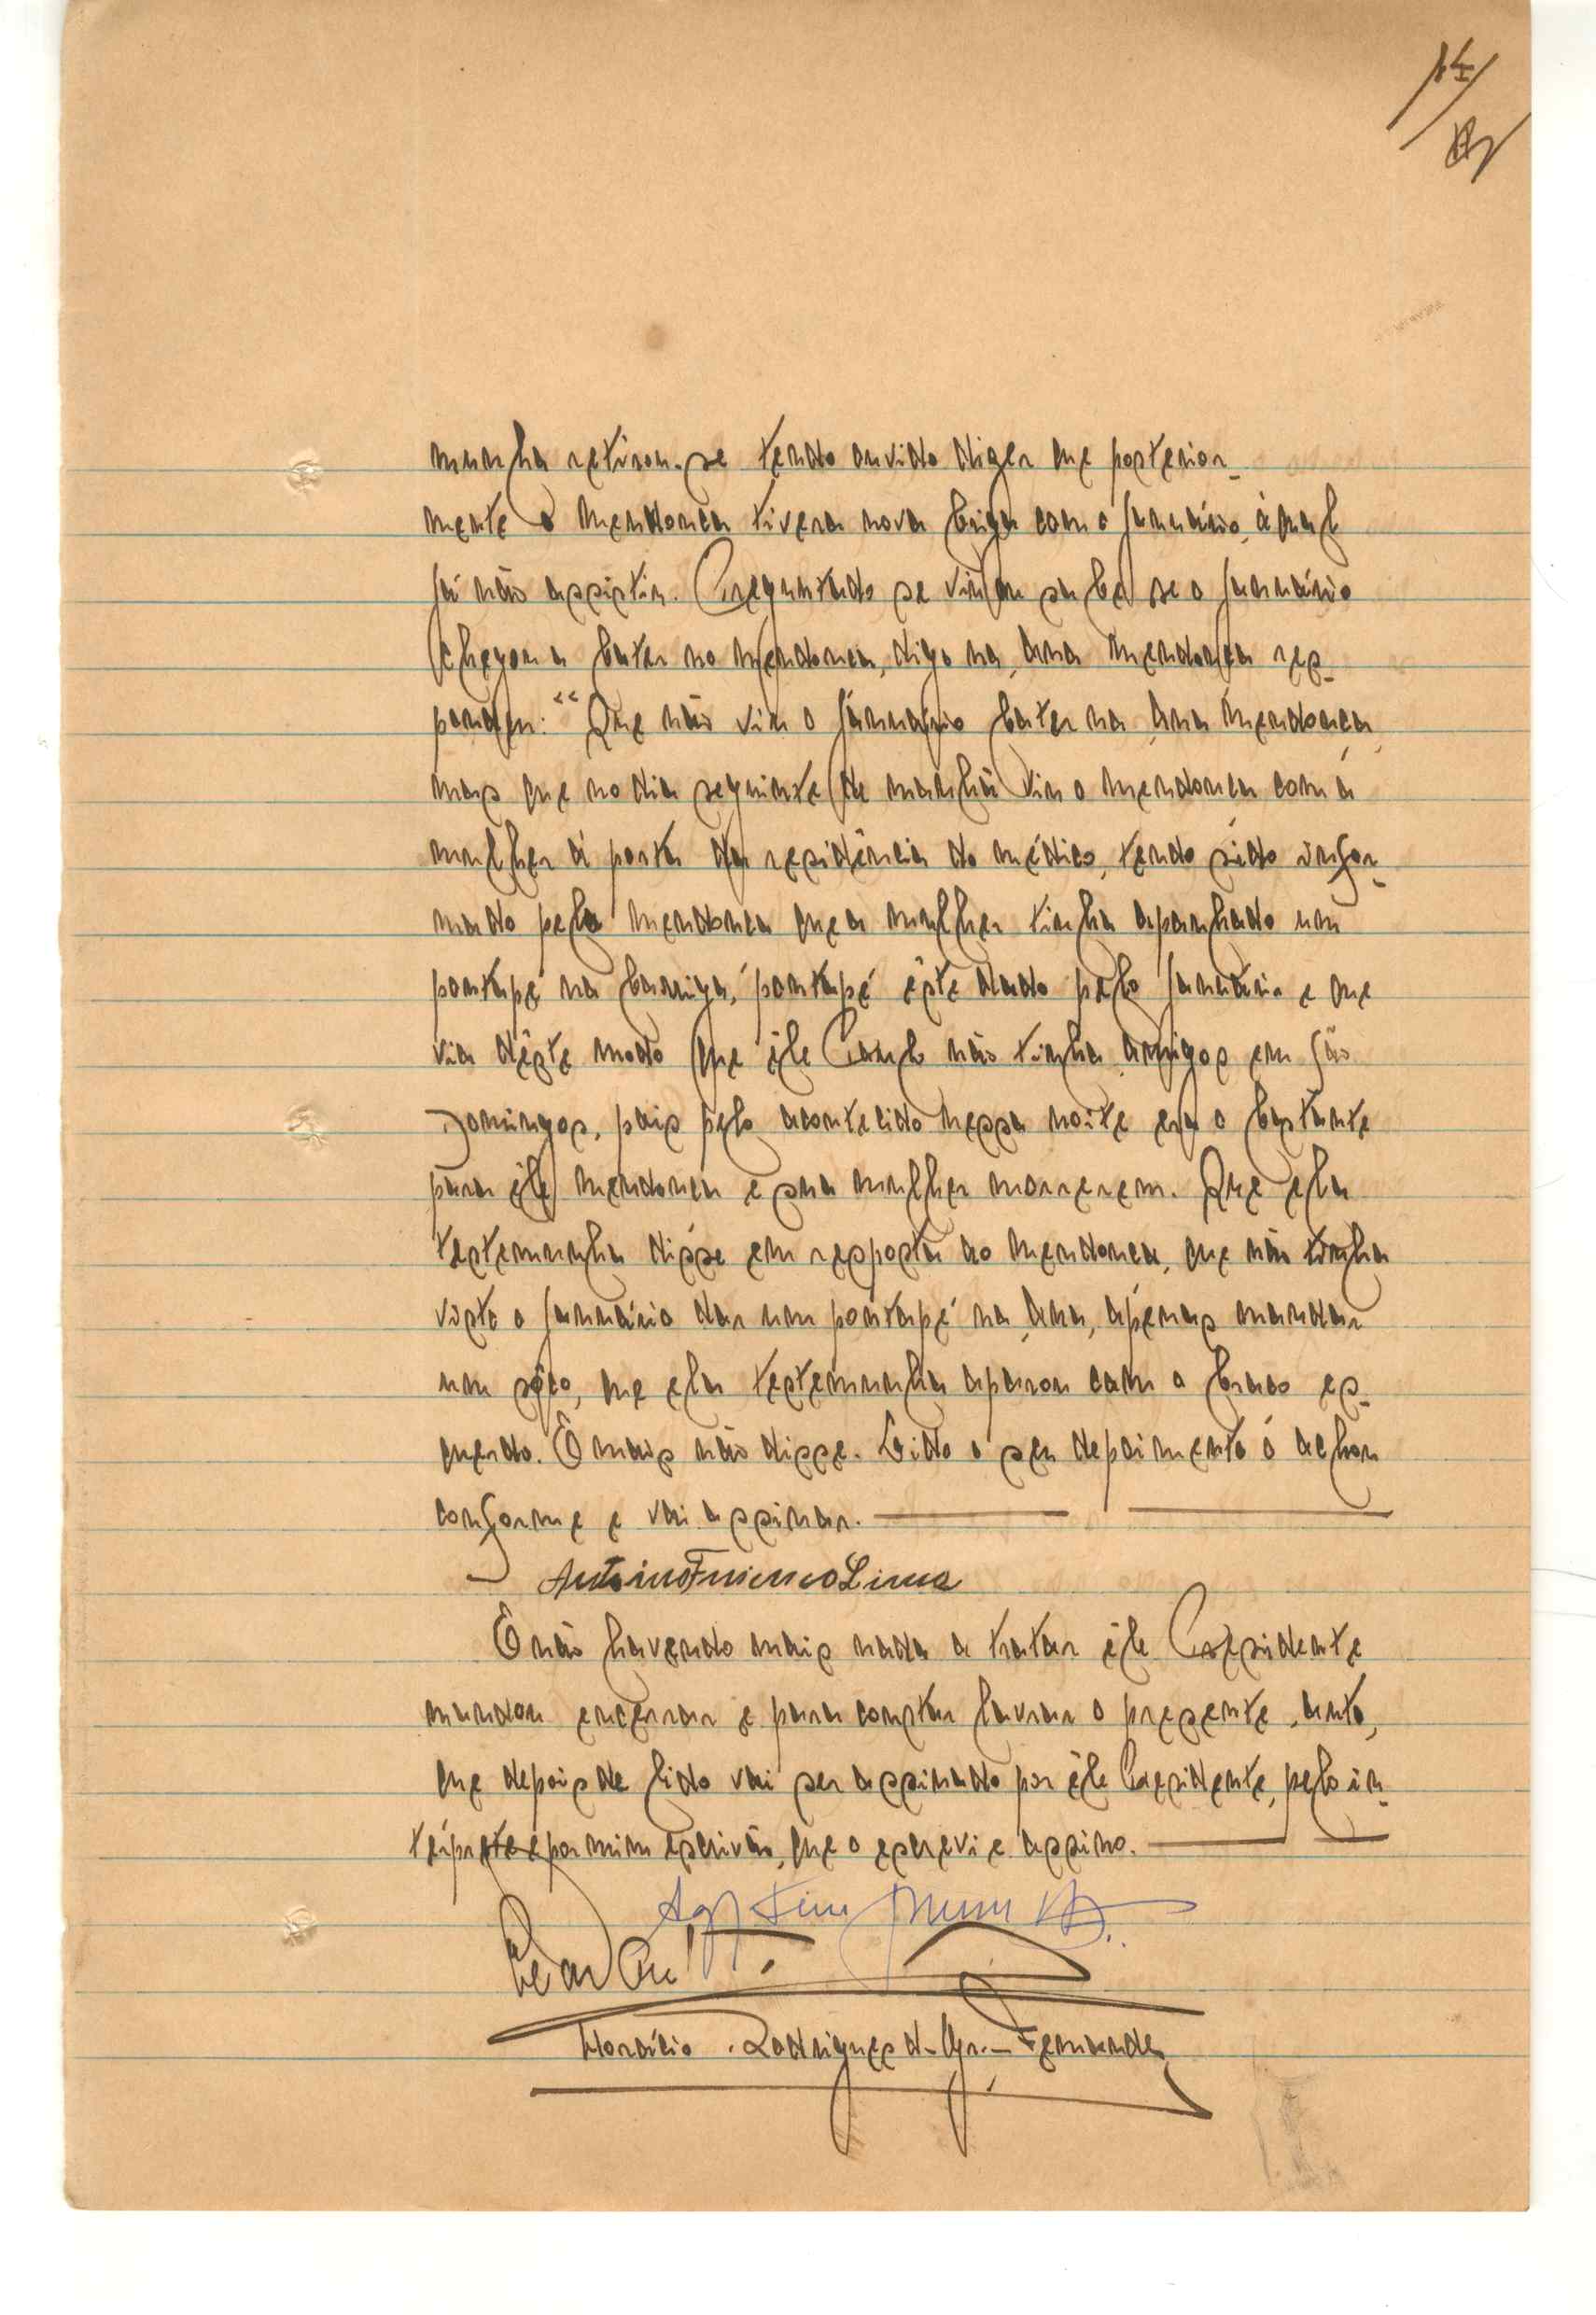 14
munha retirou-se tendo ouvido dizer que posterior-
mente o Mendonca tivera nova briga com o Januário, à qual
já não assistiu. Preguntado se viu ou sabe se o Januário
chegou a bater no Mendonca, digo na Ana Mendonca res-
pondeu: "Que não viu o Januário bater na Ana Mendonca
mas que no dia seguinte de manhã viu o Mendonca com a
mulher à porta da residência do médico, tendo sido infor-
mado pelo Mendonca que a mulher tinha apanhado um
pontapé na barriga, pontapé êste dado pelo Januário e que
via dêste modo que êle Paulo não tinha amigos em São
Domingos, pois pelo acontecido nessa noite era o bastante
para êle Mendonca e sua mulher morrerem. Que ela
testemunha disse em resposta ao Mendonca, que não tinha
visto o Januário dar um pontapé na Ana, apenas mandar
um sôco, que ela testemunha aparou com o braco es-
querdo. E mais não disse. Lido o seu depoimento o achou
conforme e vai assinar.
Antonio Francisco Lima
E não havendo mais nada a tratar êle Presidente
mandou encerrar e para constar lavrar o presente auto,
que depois de lido vai ser assinado por êle Presidente, pelo in-
térprete e por mim escrivão, que o escrevi e assino.
Horácio Rodrigues Fernandes